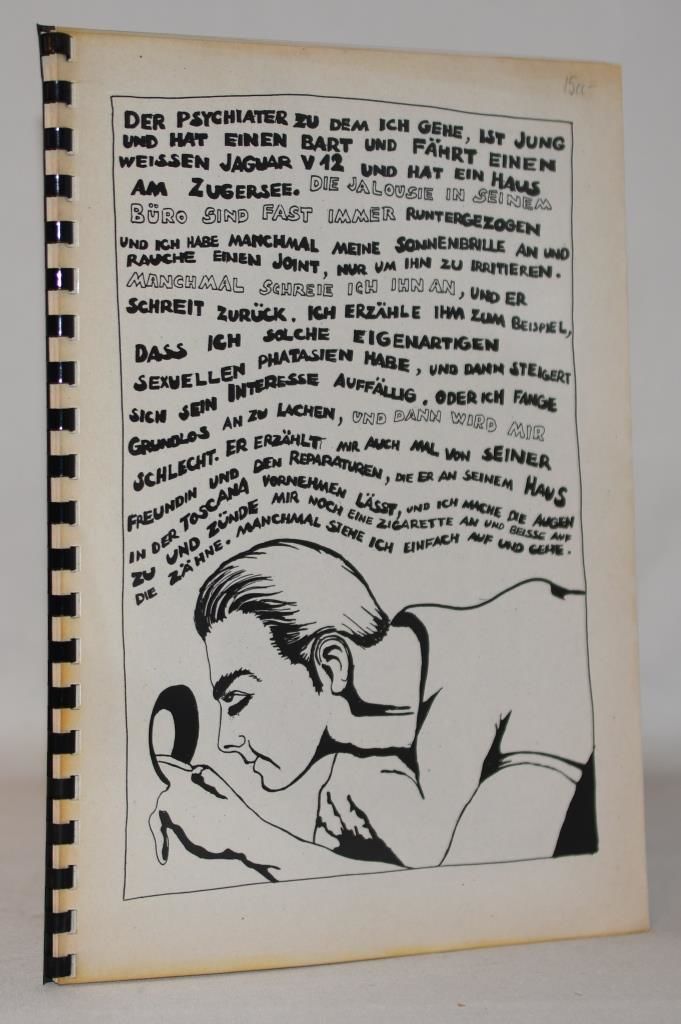 15oo-
DER PSYCHIATER ZU DEM ICH GEHE, IST JUNG
UND HAT EINEN BART UND FÄHRT EINEN
WEISSEN JAGUAR V12 UND HAT EIN HAUS
AM ZUGERSEE. DIE JALOUSIE IN SEINEM
BÜRO SIND FAST IMMER RUNTERGEZOGEN
UND ICH HABE MANCHMAL MEINE SONNENBRILLE AN UND
RAUCHE EINEN JOINT, NUR UM IHN ZU IRRITIEREN.
MANCHMAL SCHREIE ICH IHN AN, UND ER
SCHREIT ZURÜCK. ICH ERZÄHLE IHM ZUM BEISPIEL,
DASS ICH SOLCHE EIGENARTIGEN
SEXUELLEN PHATASIEN HABE, UND DANN STEIGERT
SICH SEIN INTERESSE AUFFÄLLIG. ODER ICH FANGE
GRUNDLOS AN ZU LACHEN, UND DANN WIRD MIR
SCHLECHT. ER ERZÄHLT MIR AUCH MAL VON SEINER
FREUNDIN UND DEN REPARATUREN, DIE ER AN SEINEM HAUS
IN DER TOSCANA VORNEHMEN LÄSST, UND ICH MACHE DIE AUGEN
ZU UND ZÜNDE MIR NOCH EINE ZIGARETTE AN UND BEISSE AUF
DIE ZÄHNE. MANCHMAL STEHE ICH EINFACH AUF UND GEHE.